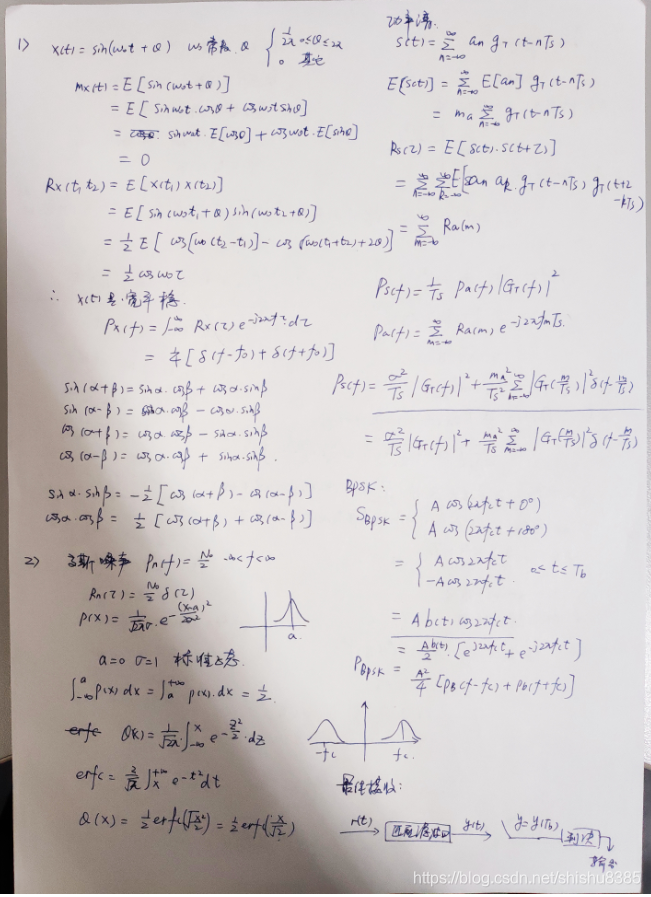 1) X(t) = sin(ω₀t + θ) ω₀常数 θ { 1/2π 0≤θ≤2π
0 其它
mx(t) = E[sin(ω₀t+θ)]
= E[sinω₀t·cosθ + cosω₀t sinθ]
= sinω₀t·E[cosθ] + cosω₀t·E[sinθ]
= 0
Rx(t₁,t₂) = E[X(t₁)X(t₂)]
= E[sin(ω₀t₁+θ) sin(ω₀t₂+θ)]
= 1/2 E[cos[ω₀(t₂-t₁)] - cos(ω₀(t₁+t₂)+2θ)]
= 1/2 cosω₀τ
∴ X(t)是宽平稳.
Px(f) = ∫_{-∞}^{∞} Rx(τ) e^{-j2πfτ} dτ
= 1/4 [δ(f-f₀) + δ(f+f₀)]
sin(α+β) = sinα·cosβ + cosα·sinβ
sin(α-β) = sinα·cosβ - cosα·sinβ
cos(α+β) = cosα·cosβ - sinα·sinβ
cos(α-β) = cosα·cosβ + sinα·sinβ.
sinα·sinβ = -1/2 [cos(α+β) - cos(α-β)]
cosα·cosβ = 1/2 [cos(α+β) + cos(α-β)]
2) 高斯噪声 Pn(f) = N₀/2 -∞<f<∞
Rn(τ) = N₀/2 δ(τ)
P(x) = 1/√2πσ · e^{-(x-a)²/2σ²}
a
a=0 σ=1 标准正态.
∫_{-∞}^{a} P(x)dx = ∫_{a}^{+∞} P(x)·dx = 1/2.
erfc Q(x) = 1/√2π · ∫_{-∞}^{x} e^{-z²/2}·dz
erfc = 2/√π ∫_{x}^{+∞} e^{-t²}dt
Q(x) = 1/2 erfc(√x²/2) = 1/2 erf(x/√2)
功率谱.
S(t) = Σ_{n=-∞}^{∞} an g_T(t-nTs)
E[S(t)] = Σ_{n=-∞}^{∞} E[an] g_T(t-nTs)
= ma Σ_{n=-∞}^{∞} g_T(t-nTs)
Rs(τ) = E[S(t)·S(t+τ)]
= Σ_{n=-∞}^{∞} Σ_{k=-∞}^{∞} E[an ak·g_T(t-nTs) g_T(t+τ-kTs)
= Σ_{m=-∞}^{∞} Ra(m)
Ps(f) = 1/Ts Pa(f)|G_T(f)|²
Pa(f) = Σ_{m=-∞}^{∞} Ra(m) e^{-j2πfmTs}
Ps(f) = σ²/Ts |G_T(f)|² + ma²/Ts² Σ_{m=-∞}^{∞} |G_T(m/Ts)|² δ(f-m/Ts)
= σ²/Ts |G_T(f)|² + ma²/Ts Σ_{m=-∞}^{∞} |G_T(m/Ts)|² δ(f-m/Ts)
BPSK:
S_BPSK = { A cos(2πfct+0°)
A cos(2πfct+180°)
= { A cos2πfct
-A cos2πfct. 0≤t≤Tb
= Ab(t) cos2πfct.
= Ab(t)/2 · [e^{j2πfct} + e^{-j2πfct}]
P_BPSK = A²/4 [PB(f-fc) + PB(f+fc)]
-fc fc.
最佳接收:
r(t) 匹配滤波口 y(t) y=y(Tb) 判决
输出
https://blog.csdn.net/shishu8385